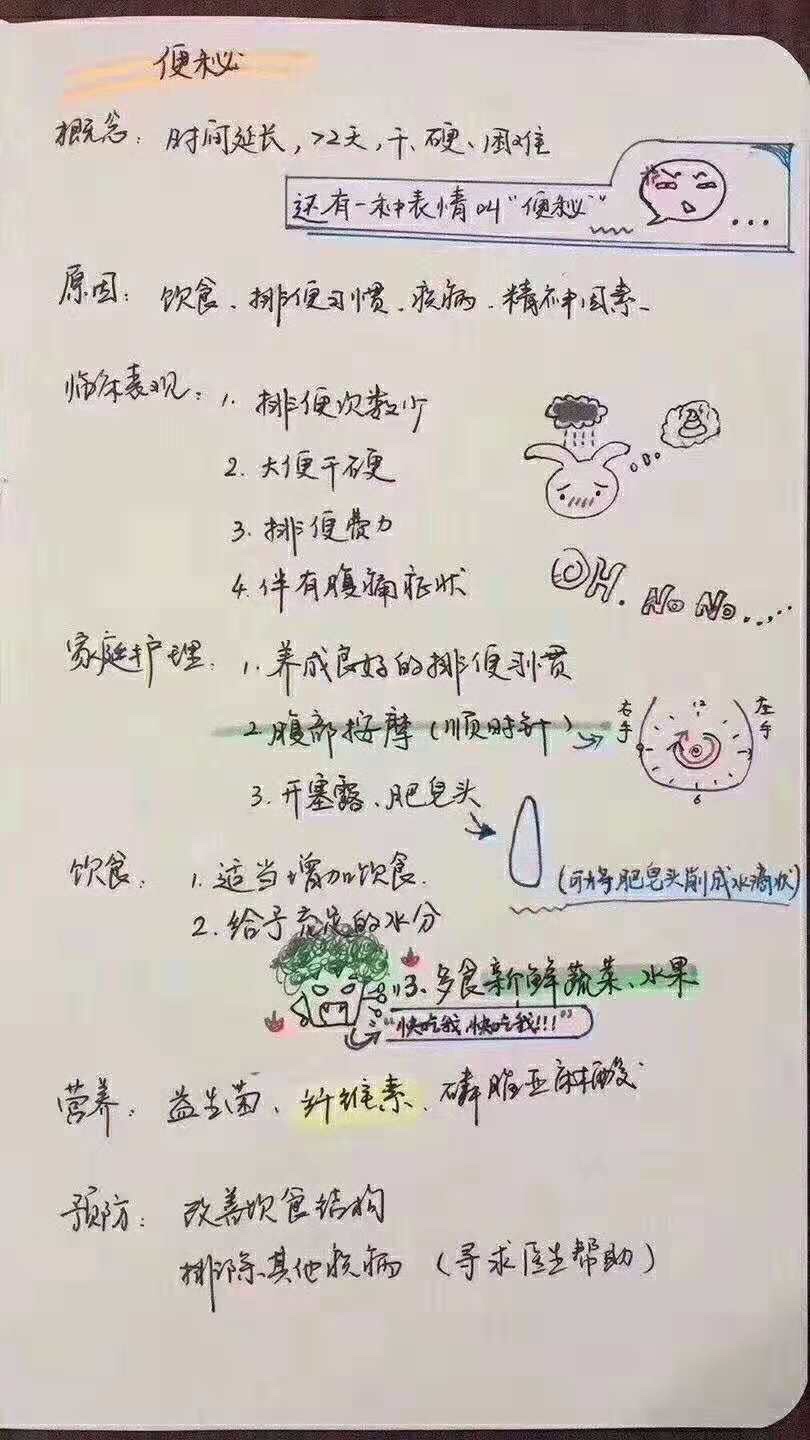 便秘
概念：时间延长，>2天，干、硬、困难
还有一种表情叫"便秘"
...
原因：饮食、排便习惯、疾病、精神因素
临床表现：1. 排便次数少
2. 大便干硬
3. 排便费力
4. 伴有腹痛症状
OH. No No.....
家庭护理：1. 养成良好的排便习惯
2. 腹部按摩（顺时针）
右手 12 左手
9 3
6
3. 开塞露、肥皂头
(可将肥皂头削成水滴状)
饮食：1. 适当增加饮食.
2. 给予充足的水分
3. 多食新鲜蔬菜、水果
"快吃我,快吃我!!!"
营养：益生菌、纤维素、磷脂亚麻酸
预防：改善饮食结构
排除其他疾病（寻求医生帮助）